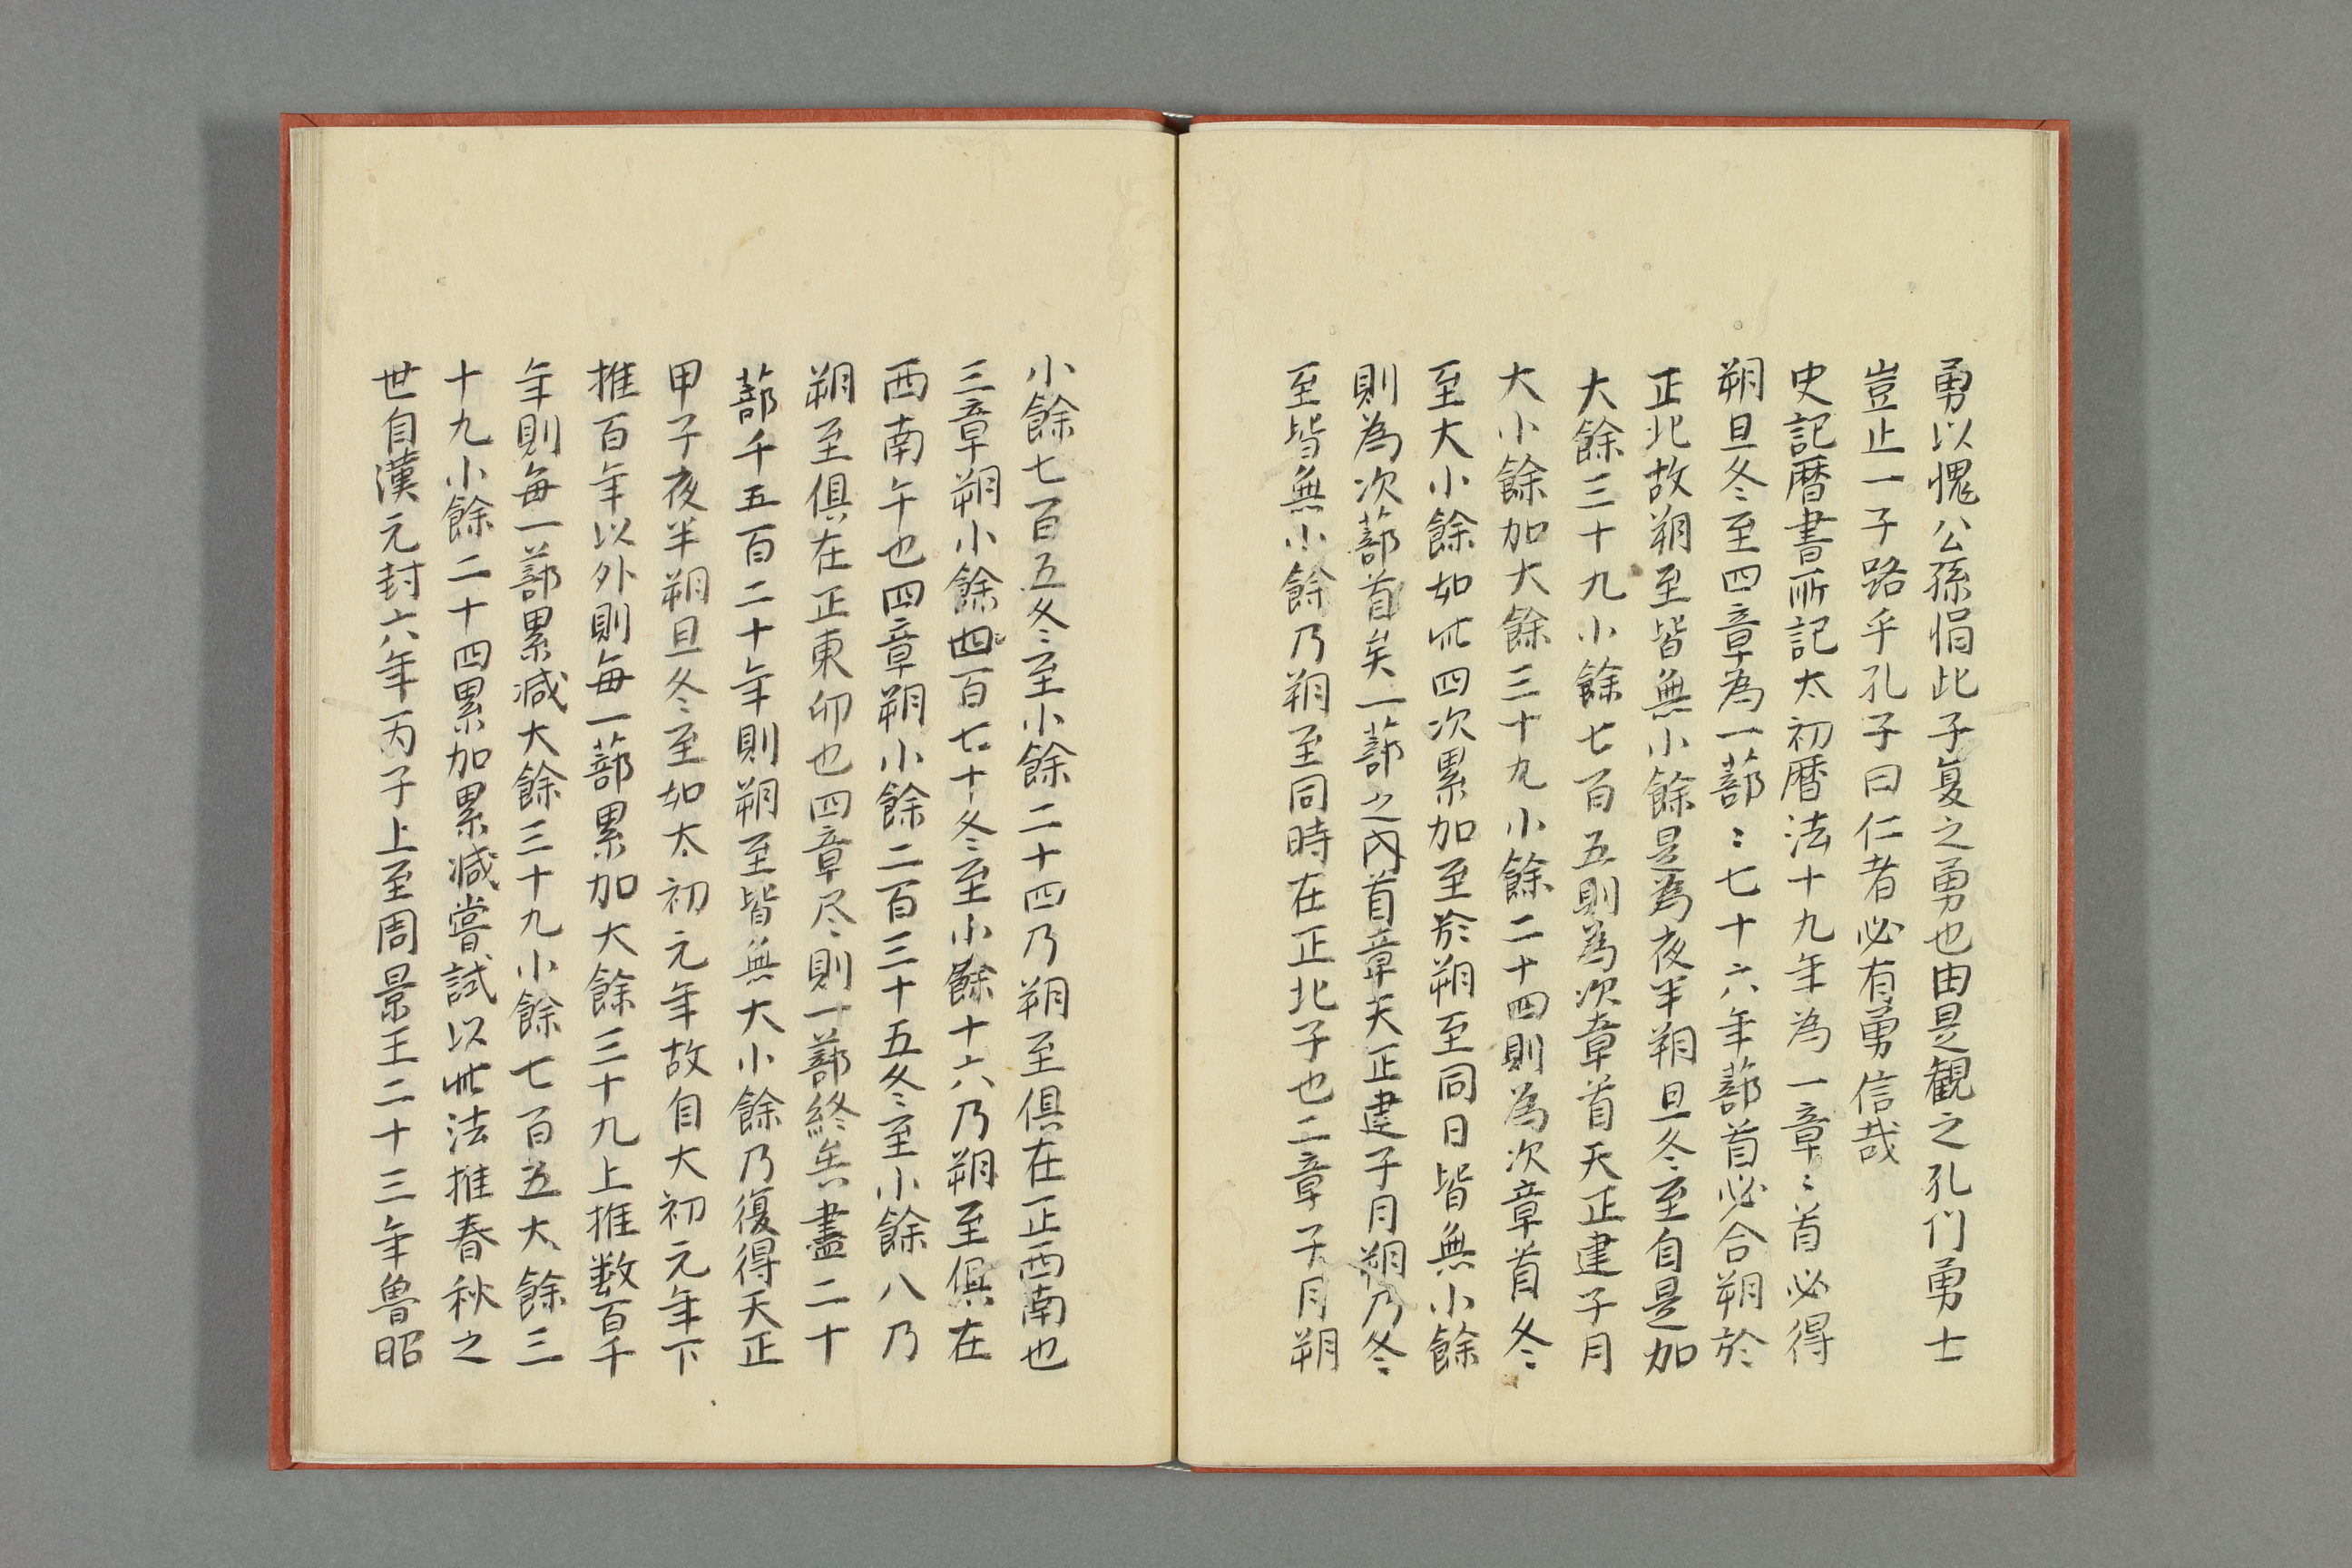 勇以愧公孫悁此子夏之勇也由是観之孔们勇士
豈止一子路乎孔子曰仁者必有勇信哉
史記暦書所記太初暦法十九年為一章〻首必得
朔旦冬至四章為一蔀〻七十六年蔀首必合朔於
正北故朔至皆無小餘是為夜半朔旦冬至自是加
大餘三十九小餘七百五則為次章首天正建子月
大小餘加大餘三十九小餘二十四則為次章首冬
至大小餘如此四次累加至於朔至同日皆無小餘
則為次蔀首矣一蔀之内首章天正建子月朔乃冬
至皆無小餘乃朔至同時在正北子也二章子月朔
小餘七百五冬至小餘二十四乃朔至俱在正西南也
三章朔小餘四百七十冬至小餘十六乃朔至俱在
西南午也四章朔小餘二百三十五冬至小餘八乃
朔至俱在正東卯也四章尽則一蔀終矣盡二十
蔀千五百二十年則朔至皆無大小餘乃復得天正
甲子夜半朔旦冬至如太初元年故自大初元年下
推百年以外則毎一蔀累加大餘三十九上推数百千
年則毎一蔀累減大餘三十九小餘七百五大餘三
十九小餘二十四累加累減嘗試以此法推春秋之
世自漢元封六年丙子上至周景王二十三年魯昭